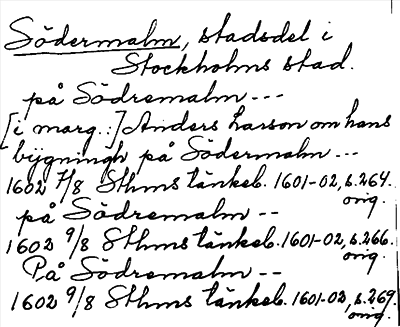 Södermalm, stadsdel i
Stockholms stad.
på Södremalm ---
[i marg.:] Anders Larson om hans
bygningh på Södermalm ---
1602 7/8 Sthms tänkeb. 1601-02, s. 264.
orig.
på Södremalm --
1602 9/8 Sthms tänkeb. 1601-02, s. 266.
orig.
På Södremalm --
1602 9/8 Sthms tänkeb. 1601-02, s. 269.
orig.